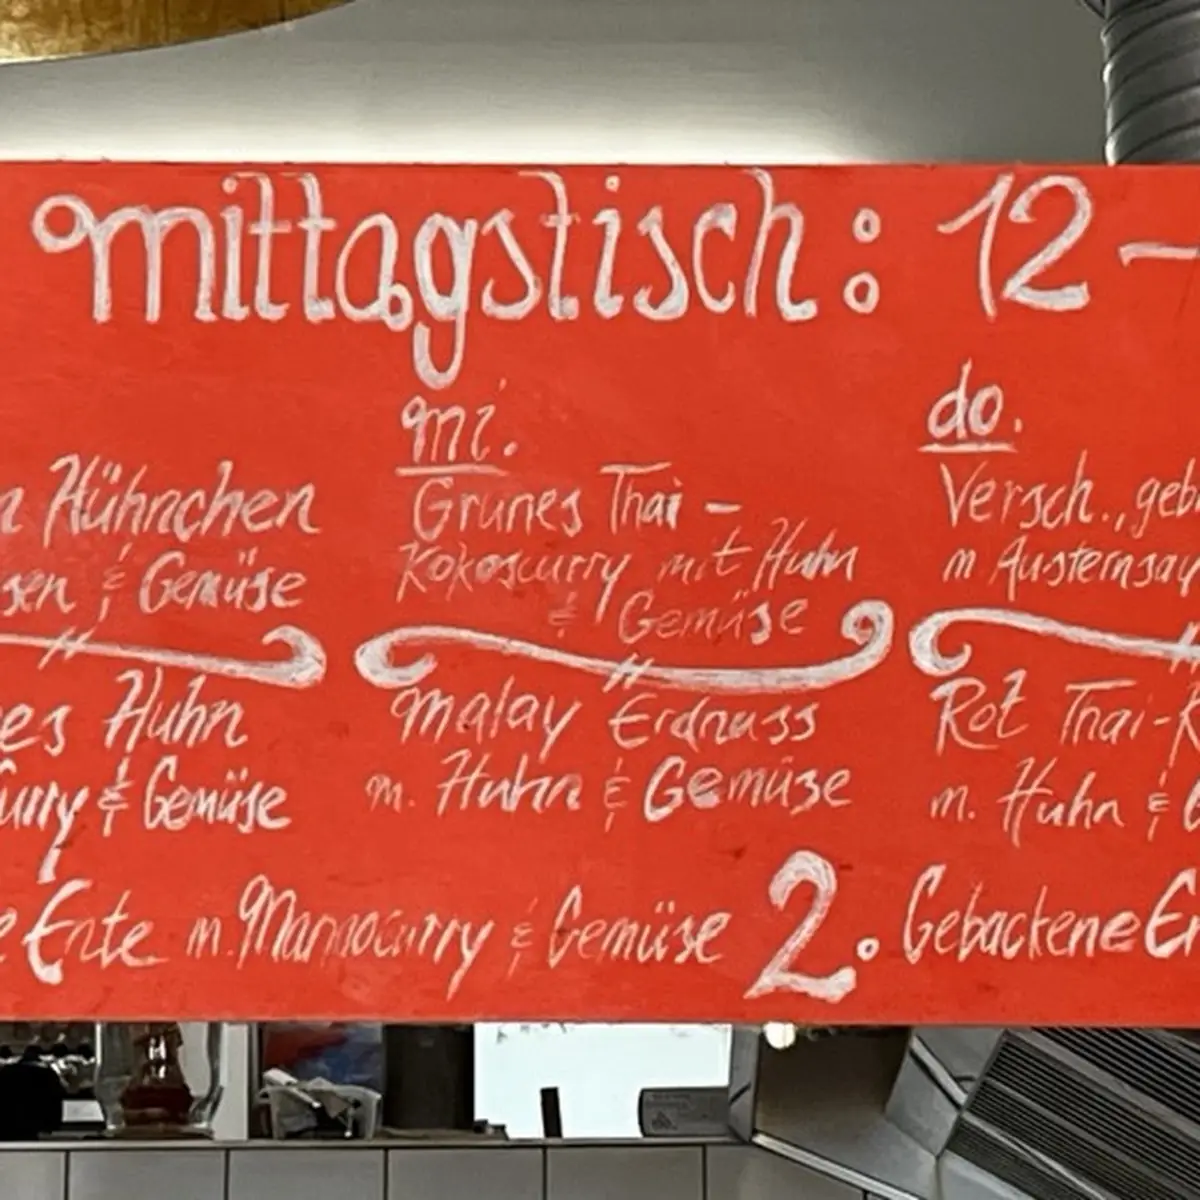 mittagstisch: 12 –
Hühnchen
& Gemüse
Huhn
& Gemüse
mi.
Grünes Thai -
Kokoscurry mit Huhn
& Gemüse
Malay Erdnuss
m. Huhn & Gemüse
do.
Versch., geb
m Austernsau
Rot Thai-K
m. Huhn & G
Ente m. Mangocurry & Gemüse 2. Gebackene